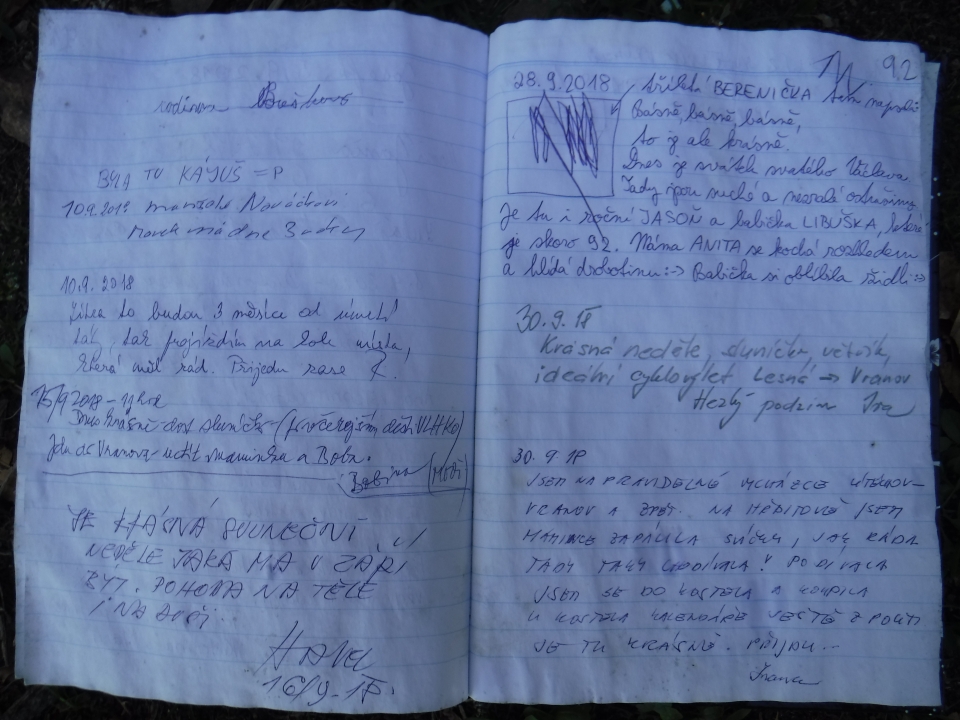 rodinou
BYLA TU KÁJUŠ =P
10.9.2018 manželé Novákovi
10.9.2018
Zítra to budou 3 měsíce od úmrtí
tak projíždím na kole místa,
která měl rád. Přijedu zase
16/9 2018 - 11 hod
Dnes krásně dost sluníčko (po včerejším dešti VLHKO)
Jdu do Vranova uctít maminku a Boha.
JE KRÁSNÁ SLUNEČNÍ
NEDĚLE JAKÁ MÁ V ZÁŘÍ
BÝT. POHODA NA TĚLE
I NA DUŠI.
16/9-18.
92
28.9.2018 tříletá BERENIČKA sem napsala
Básně, básně, básně,
to je ale krásně.
Dnes je svátek svatého Václava
Je tu i roční JASOŇ a babička LIBUŠKA, které
je skoro 92. Máma ANITA se kochá rozhledem
a hlídá drobotinu :-) Babička si oblíbila židli :-)
30.9.18
Krásná neděle, sluníčko, větřík,
ideální cyklovýlet Lesná → Vranov
Hezký podzim Iva
30.9.18
JSEM NA PRAVIDELNÉ VYCHÁZCE ÚTĚCHOV-
VRANOV A ZPĚT. NA HŘBITOVĚ JSEM
MAMINCE ZAPÁLILA SVÍČKU, JAK RÁDA
TADY TAKY CHODÍVALA! PODÍVALA
JSEM SE DO KOSTELA A KOUPILA
U KOSTELA KALENDÁŘE JEŠTĚ Z POUTI
JE TU KRÁSNĚ. PŘIJDU...
Ivana